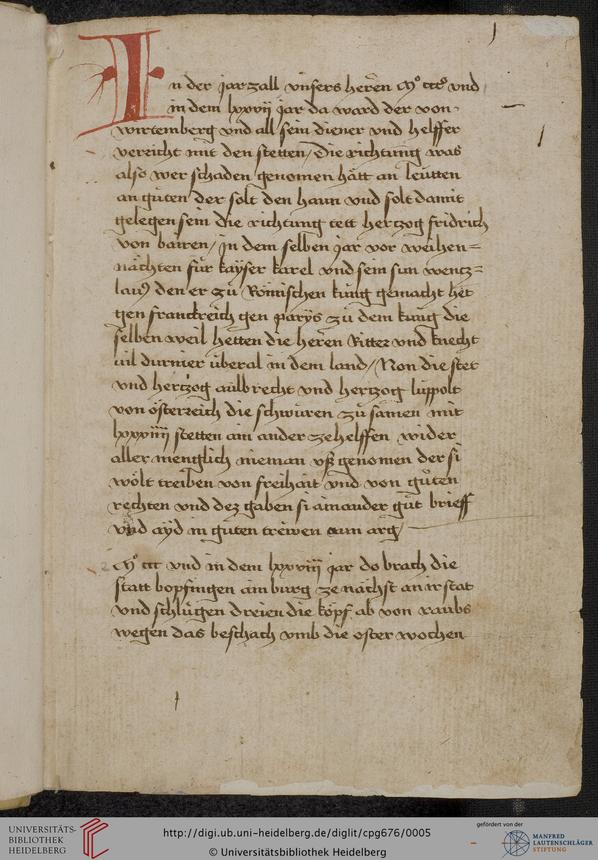 In der jarzall vnsers heren Mº cccº vnd
in dem lxxvij jar da ward der von
wirtemberg vnd all sein diener vnd helffer
vereicht mit den stetten / die richtung was
also wer schaden genomen hätt an leütten
an güten der solt den haun vnd solt damit
gelegen sein die richtung tett hertzog fridrich
von bairen / in dem selben jar vor weihen=
nächten für kaÿser karel vnd sein sun wentz=
laus den er zü Römischen küng gemacht het
gen franckreich gen parÿs zü dem küng die
selben weil hetten die heren Ritter vnd knecht
uil durnier überal in dem land / Non die stet
vnd hertzog aülbrecht vnd hertzog lüppolt
von österreich die schwüren zü sämen mit
lxxxiiij stetten ain ander ze helffen wider
aller menglich nieman vß genomen der si
wölt treiben von freihait vnd von güten
rechten vnd dez gaben si ainander güt brieff
vnd aÿd in guten treiwen aun arg /
Mº ccc vnd in dem lxxviij jar do brach die
statt bopfingen ain burg ze nächst an ir stat
vnd schlügen dreien die köpf ab von raubs
wegen das beschach vmb die oster wochen
UNIVERSITÄTS-
BIBLIOTHEK
HEIDELBERG
http://digi.ub.uni-heidelberg.de/diglit/cpg676/0005
© Universitätsbibliothek Heidelberg
gefördert von der
MANFRED
LAUTENSCHLÄGER
STIFTUNG